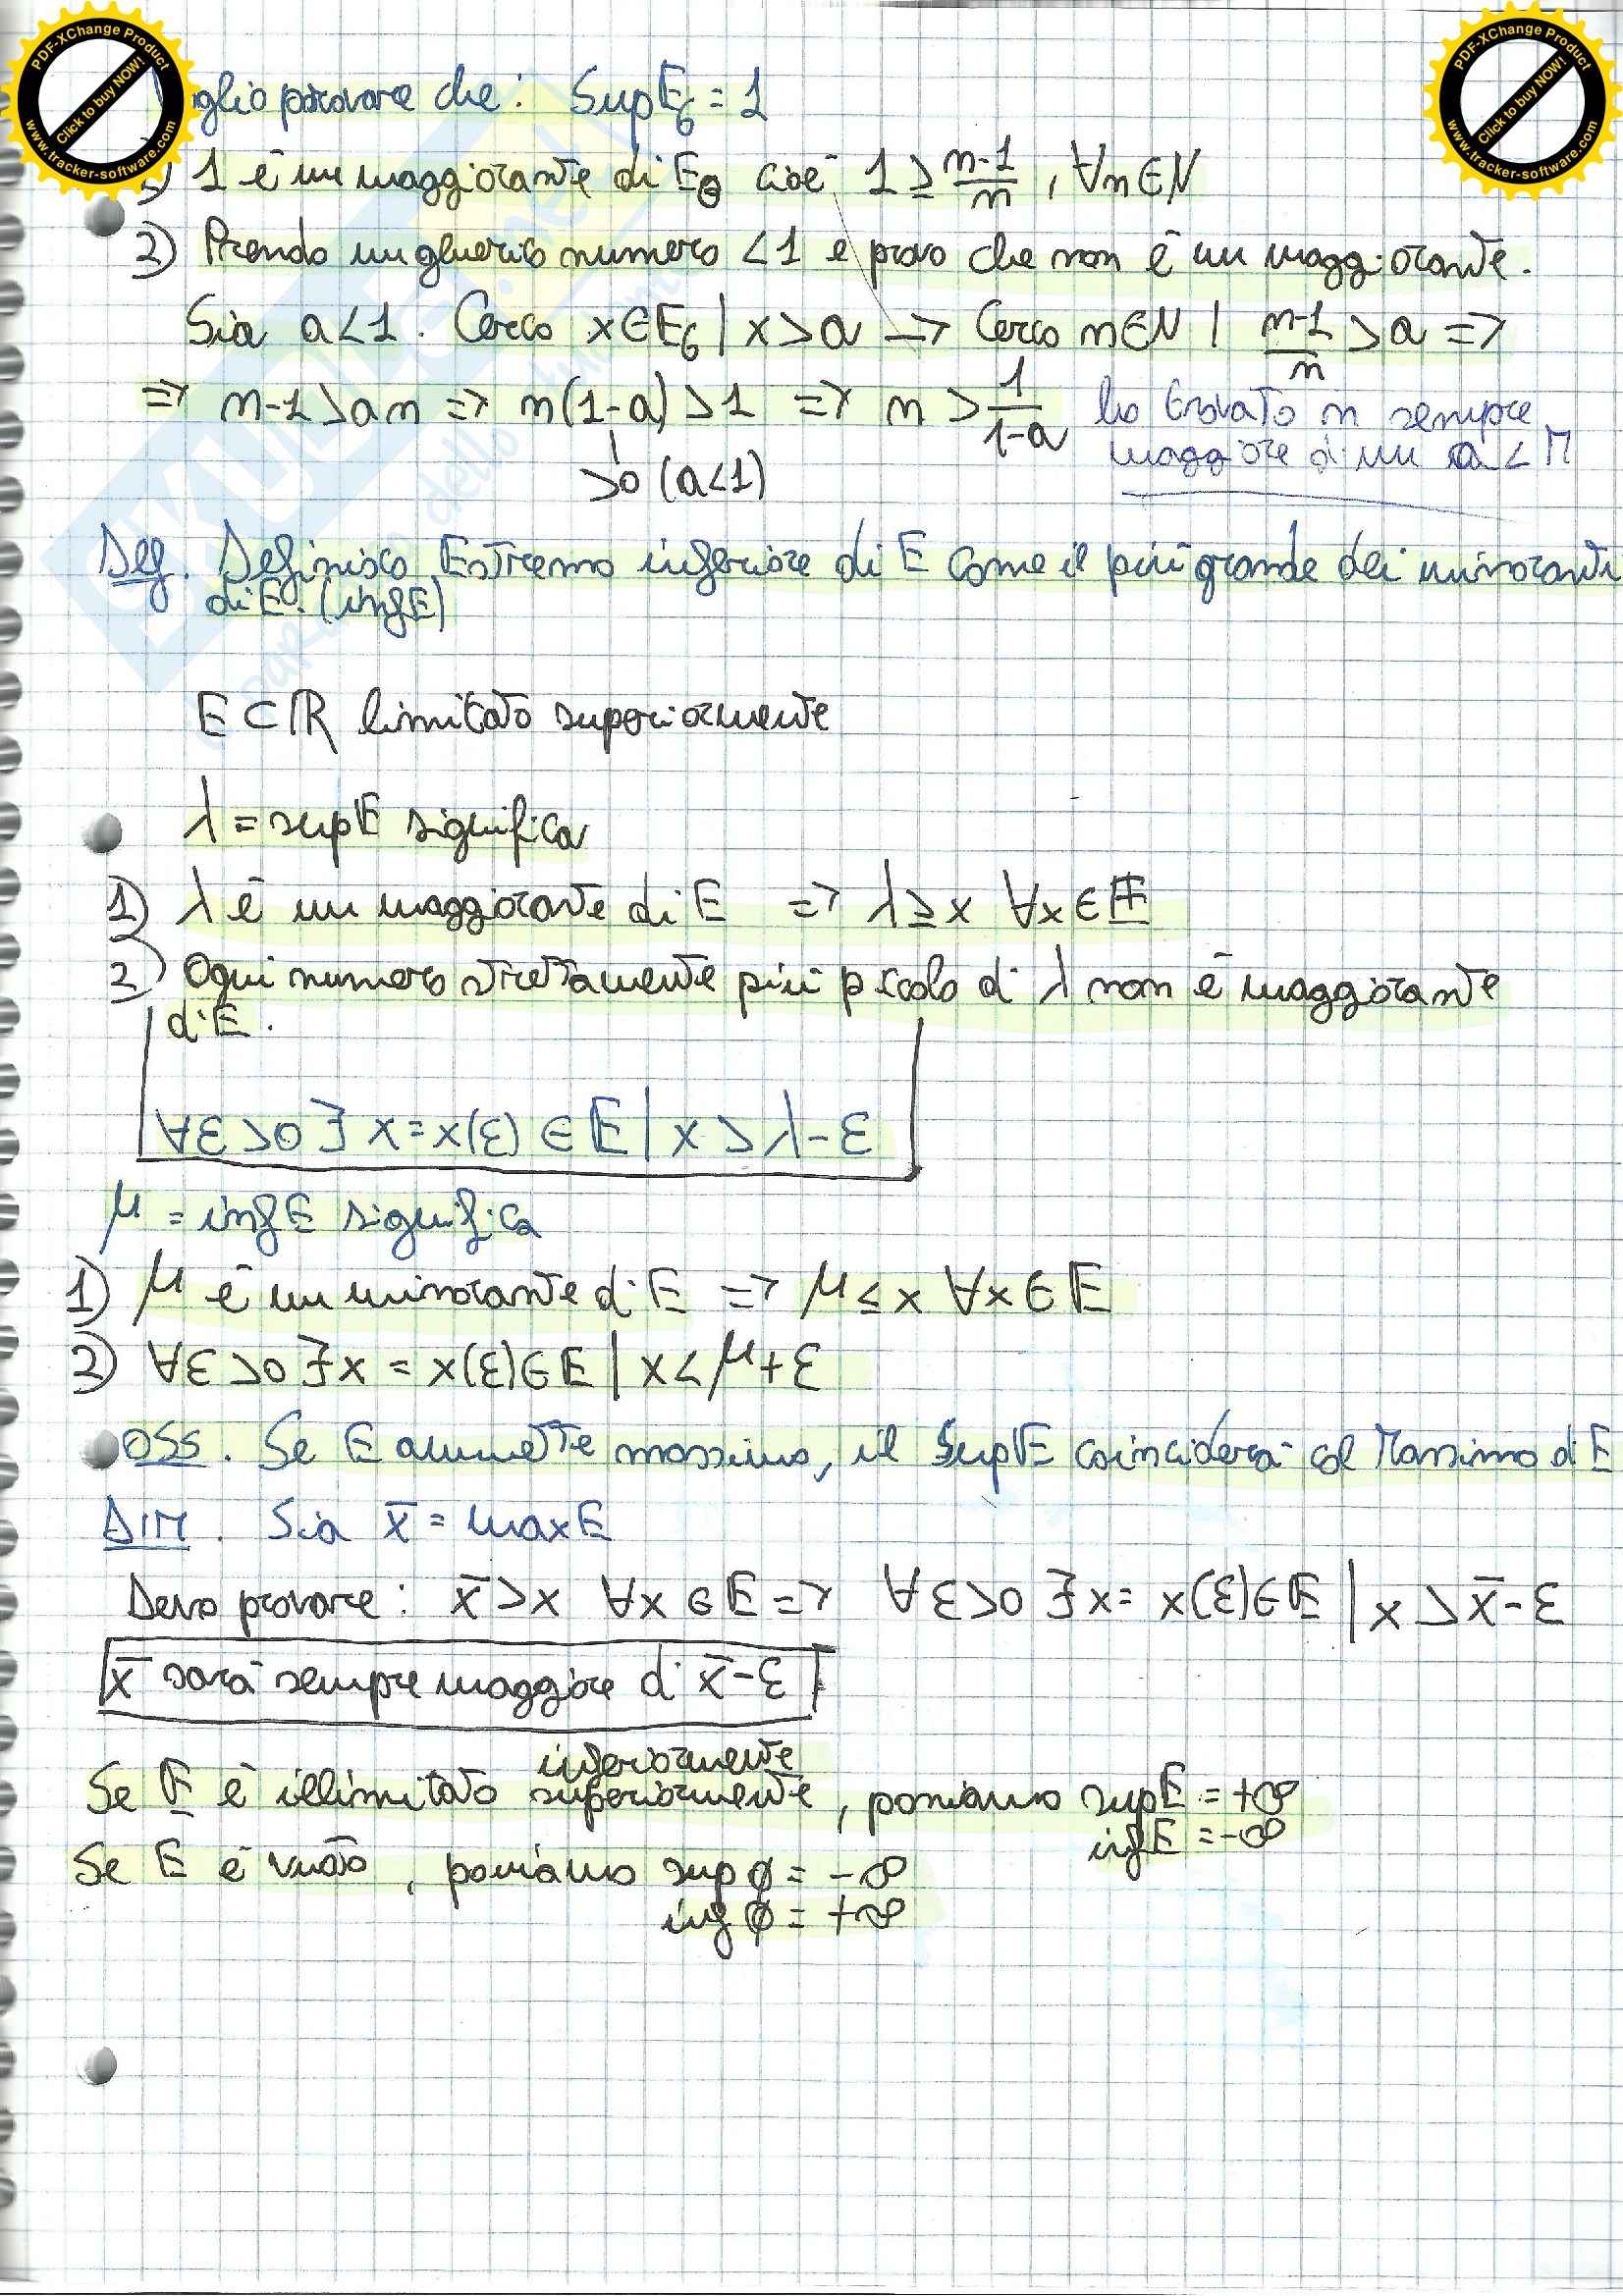 PDF-XChange Product
Click to buy NOW!
www.tracker-software.com
PDF-XChange Product
Click to buy NOW!
www.tracker-software.com
oglio provare che: Sup E₆ = 1
1) 1 è un maggiorante di E₆ cioè 1 ≥ (n-1)/n , ∀n∈N
2) Prendo un generico numero < 1 e provo che non è un maggiorante.
Sia a<1. Cerco x∈E₆ | x>a → Cerco n∈N | (n-1)/n > a =>
=> n-1>an => n(1-a)>1 => n > 1/(1-a) ho trovato n sempre
maggiore di un a < M
>0 (a<1)
Def. Definisco Estremo inferiore di E come il più grande dei minoranti
di E. (inf E)
E⊂ℝ limitato superiormente
λ = sup E significa
1) λ è un maggiorante di E => λ ≥ x ∀x∈E
2) Ogni numero strettamente più piccolo di λ non è maggiorante
di E.
∀ε>0 ∃x=x(ε)∈E | x>λ-ε
μ = inf E significa
1) μ è un minorante di E => μ ≤ x ∀x∈E
2) ∀ε>0 ∃x = x(ε)∈E | x<μ+ε
OSS. Se E ammette massimo, il Sup E coinciderà col Massimo di E
DIM. Sia x̄ = max E
Devo provare: x̄>x ∀x∈E => ∀ε>0 ∃x=x(ε)∈E | x>x̄-ε
x̄ sarà sempre maggiore di x̄-ε
inferiormente
Se E è illimitato superiormente, poniamo sup E = +∞
inf E = -∞
Se E è vuoto, poniamo sup ∅ = -∞
inf ∅ = +∞